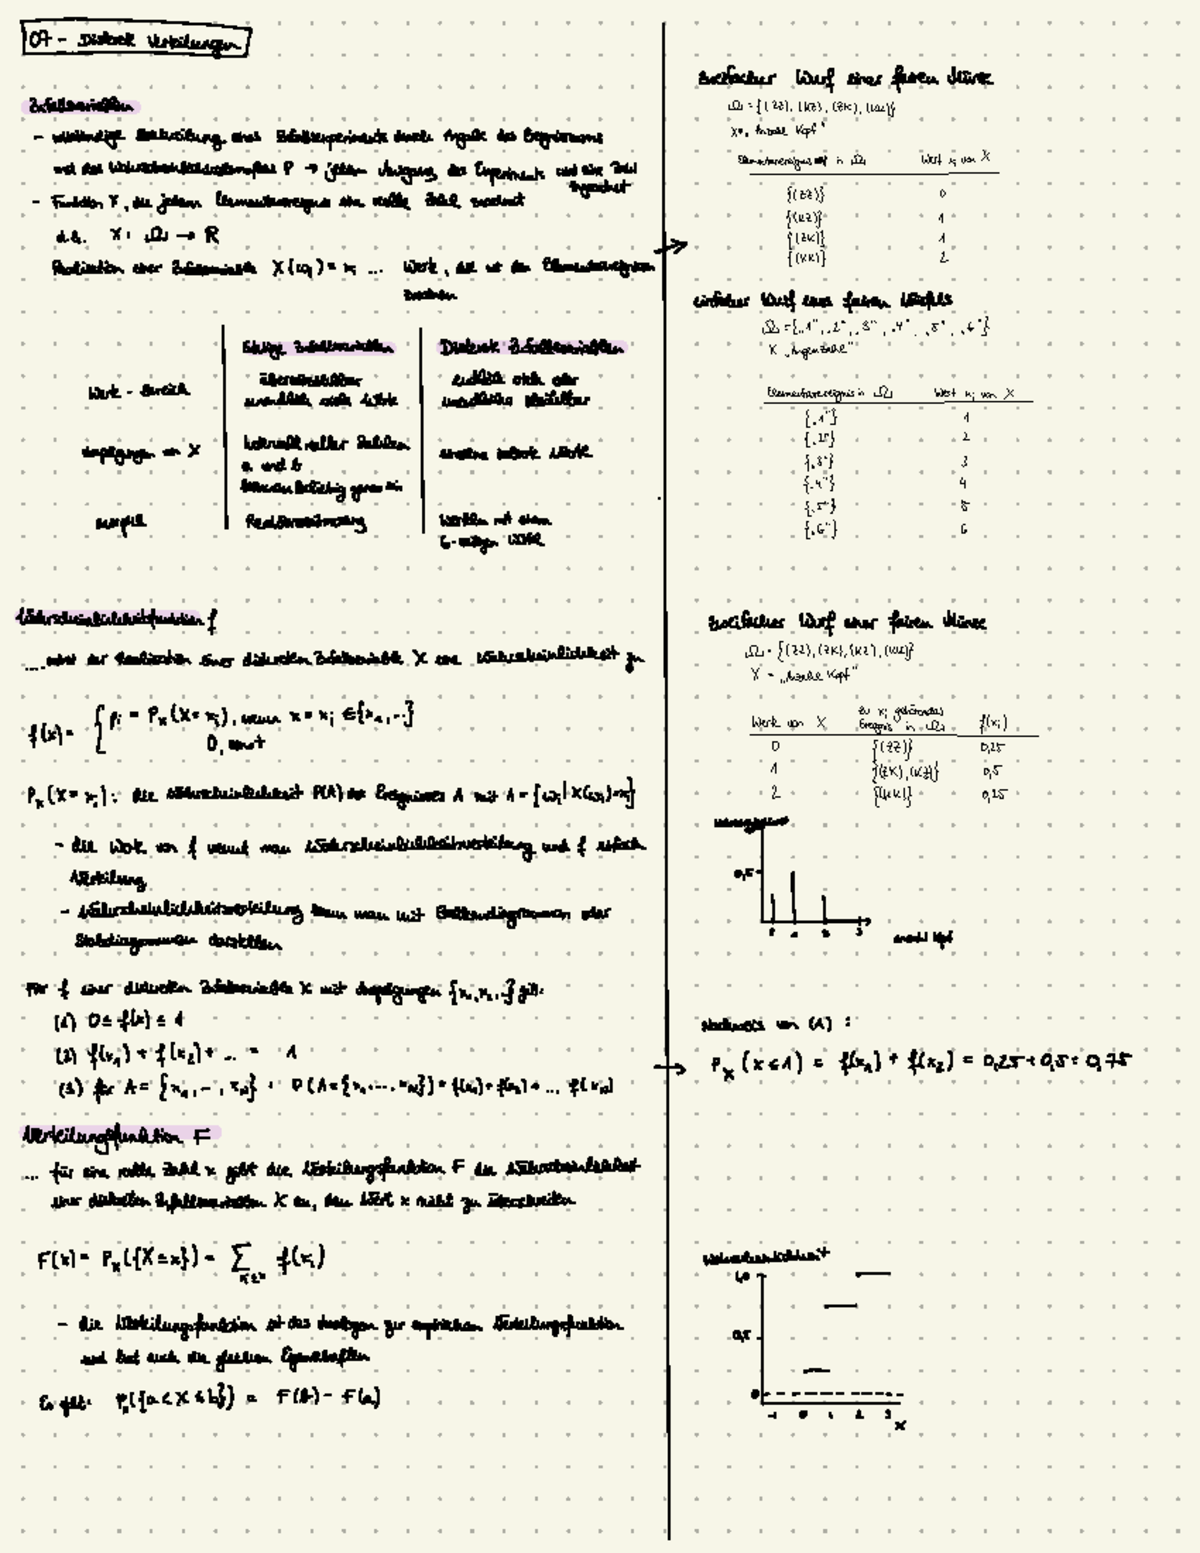 07 - Diskrete Verteilungen
Zufallsvariablen
- vollständige Beschreibung eines Zufallsexperiments durch Angabe des Ereignisraums
und des Wahrscheinlichkeitsmaßes P → jedem Ausgang des Experiments wird eine Zahl
zugeordnet
- Funktion X, die jedem Elementarereignis eine reelle Zahl zuordnet
d.h. X: Ω → R
Realisation einer Zufallsvariable X(ωi) = xi ... Werte, die sie den Elementarereignissen
zuordnen
Stetige Zufallsvariablen Diskrete Zufallsvariablen
Werte-Bereich
überabzählbar endlich viele oder
unendlich viele Werte unendliche abzählbar
Ausprägungen von X
Intervall reeller Zahlen einzelne Werte
a und b
beliebig genau
Beispiel Reaktionsmessung Werfen mit einem
6-seitigen Würfel
Wahrscheinlichkeitsfunktion f
... ordnet der Realisation einer diskreten Zufallsvariable X eine Wahrscheinlichkeit zu
f(x) = { pi = Px(X = xi), wenn x = xi ∈ {x1, ...}
0, sonst
Px(X = xi): die Wahrscheinlichkeit P(A) des Ereignisses A mit A = {ωi | X(ωi) = xi}
- die Werte von f nennt man Wahrscheinlichkeitsverteilung und f einfach
Verteilung
- Wahrscheinlichkeitsverteilung kann man mit Balkendiagrammen oder
Stabdiagrammen darstellen
Für f einer diskreten Zufallsvariable X mit Ausprägungen {x1, x2, ...} gilt:
(1) 0 ≤ f(x) ≤ 1
(2) f(x1) + f(x2) + ... = 1
(3) für A = {x1, ..., xN}: P(A = {x1, ..., xN}) = f(x1) + f(x2) + ... f(xN)
Verteilungsfunktion F
... für eine reelle Zahl x gibt die Verteilungsfunktion F die Wahrscheinlichkeit
einer diskreten Zufallsvariablen X an, den Wert x nicht zu überschreiten
F(x) = Px({X ≤ x}) = ∑ xi≤x f(xi)
- die Verteilungsfunktion ist das Analogon zur empirischen Verteilungsfunktion
und hat auch die gleichen Eigenschaften
Es gilt: Px({a < X ≤ b}) = F(b) - F(a)
Zweifacher Wurf einer fairen Münze
Ω = {(ZZ), (KZ), (ZK), (KK)}
X = „Anzahl Kopf"
Elementarereignis in Ω Wert xi von X
{(ZZ)} 0
{(KZ)} 1
{(ZK)} 1
{(KK)} 2
einfacher Wurf eines fairen Würfels
Ω = {„1", „2", „3", „4", „5", „6"}
X „Augenzahl"
Elementarereignis in Ω Wert xi von X
{„1"} 1
{„2"} 2
{„3"} 3
{„4"} 4
{„5"} 5
{„6"} 6
Zweifacher Wurf einer fairen Münze
Ω = {(ZZ), (ZK), (KZ), (KK)}
X = „Anzahl Kopf"
Werte von X zu xi gehörendes f(xi)
Ereignis in Ω
0 {(ZZ)} 0,25
1 {(ZK), (KZ)} 0,5
2 {(KK)} 0,25
0,5
0 1 2 3
Anzahl Kopf
Nachweis von (1):
Px(x ≤ 1) = f(x1) + f(x2) = 0,25 + 0,5 = 0,75
Wahrscheinlichkeit
1,0
0,5
0
-1 0 1 2 3
x